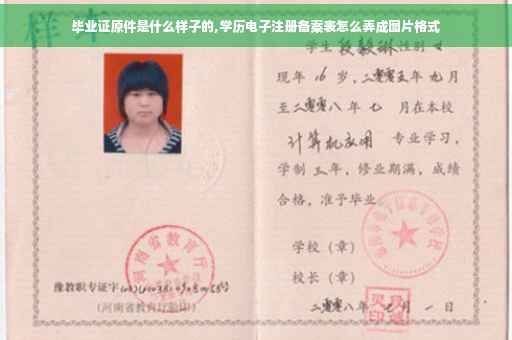 毕业证原件是什么样子的,学历电子注册备案表怎么弄成图片格式
样本
学生 段毅琳 性别 女
现年 16 岁,二零零五年 九月
至二零零八年 七 月在本校
计算机应用 专业学习,
学制 三年,修业期满,成绩
合格,准予毕业
学校(章)
校长(章)
河南省教育厅
豫教职专证字
(河南省教育厅验印)
二零零八年 月 一 日